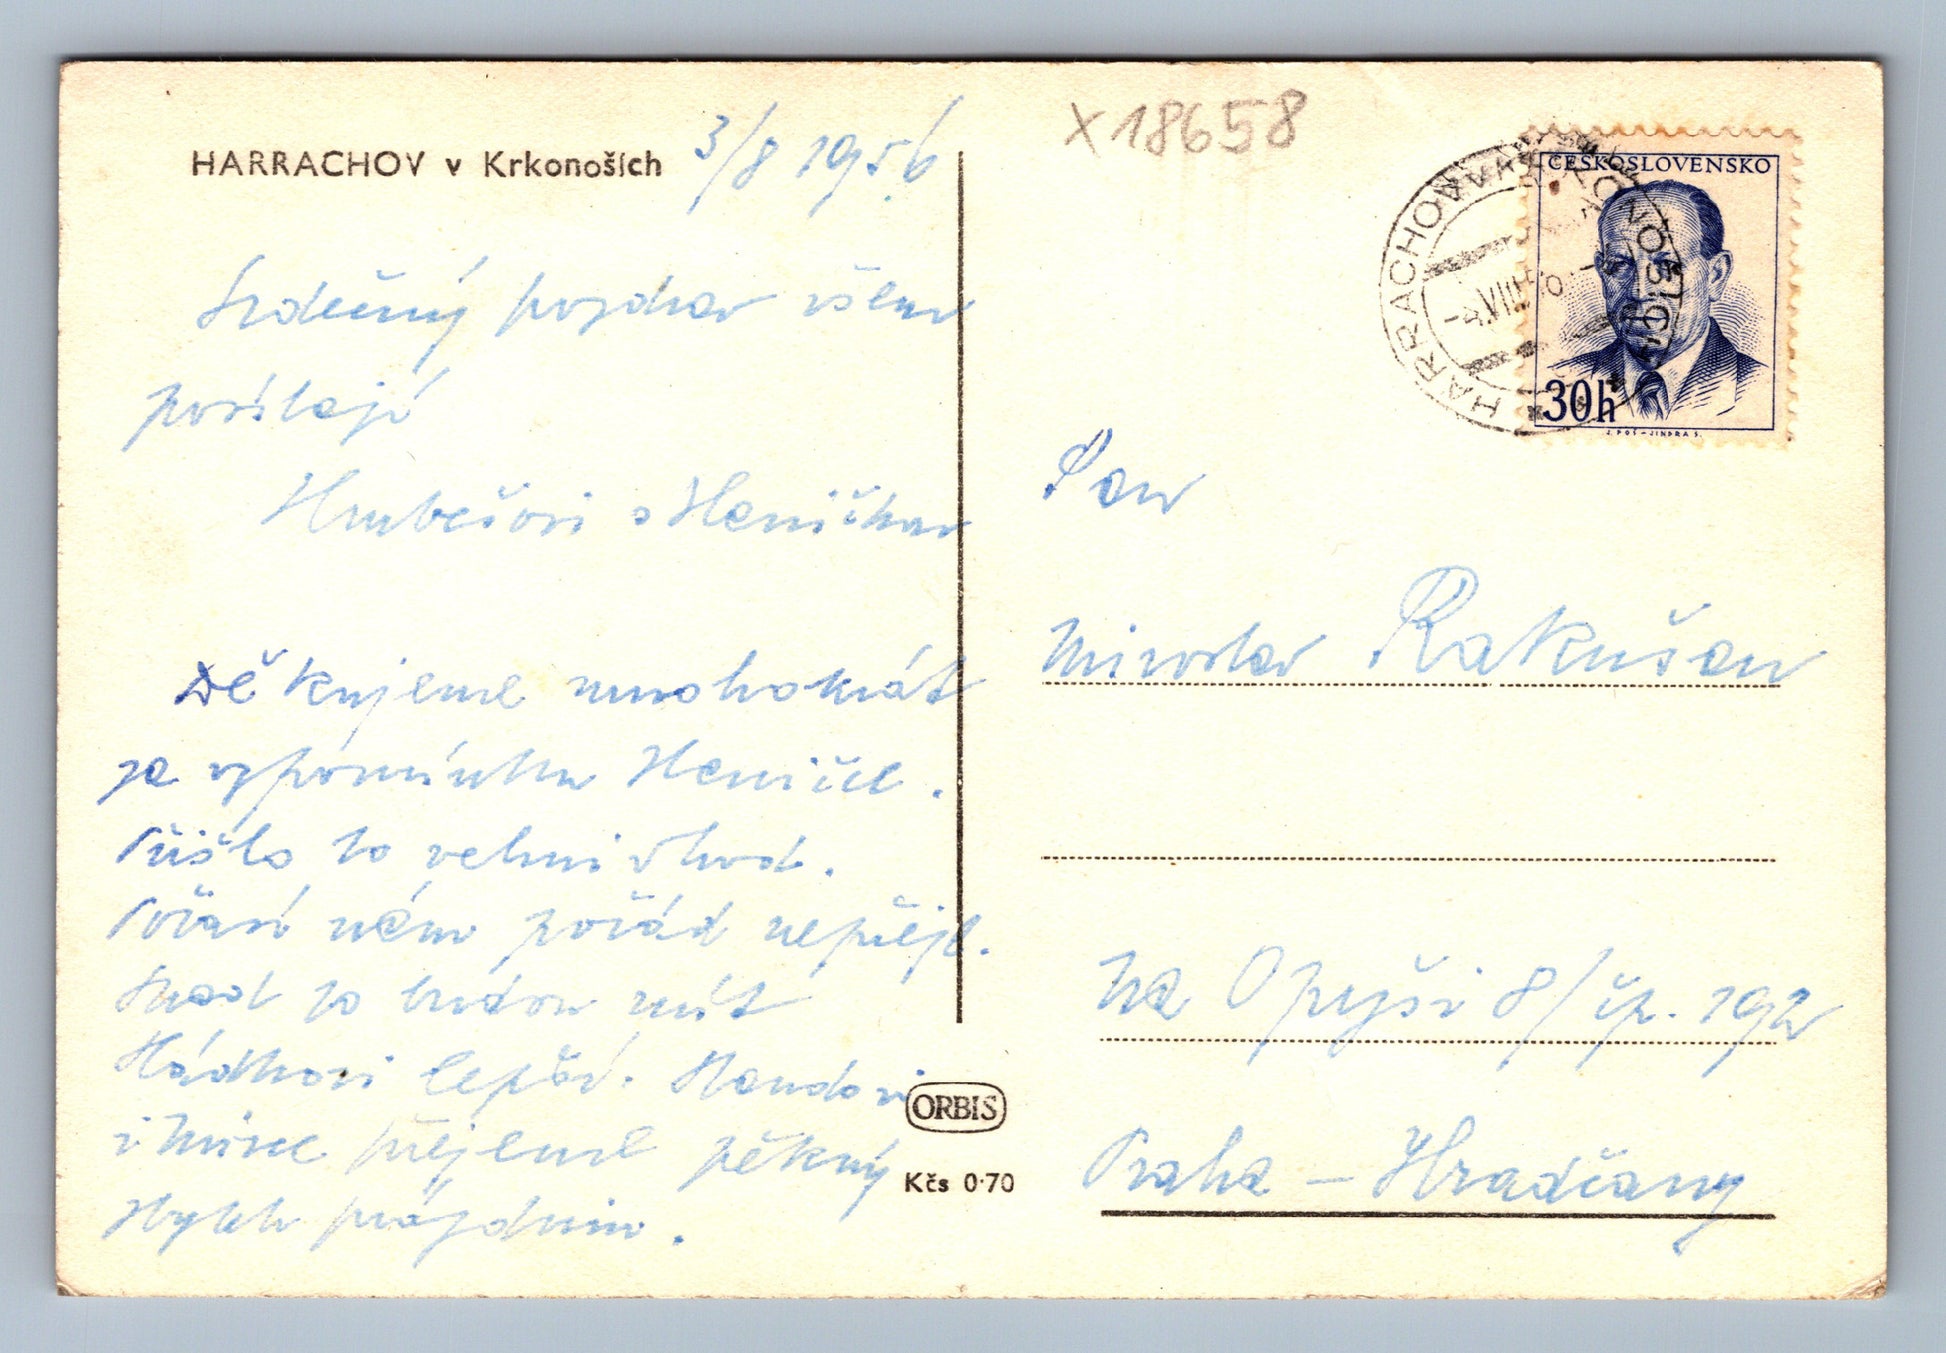 HARRACHOV v Krkonoších 3/8 1956
Srdečný pozdrav všem
posílají
Hrubešovi s Heničkou
Děkujeme mnohokrát
za vzpomínku Heničce.
Přišla to velmi vhod.
Počasí nám pořád nepřeje.
Snad to budou mít
Hádkovi lepší.
i Mirce přejeme pěkný
zbytek prázdnin.
ORBIS
Kčs 0·70
X 18658
HARRACHOV V KRKONOŠÍCH
-4.VIII.56
ČESKOSLOVENSKO
30h
J. POŠ - JINDRA S.
Pan
Miroslav Rakušan
Na Opyši 8/čp. 192
Praha – Hradčany